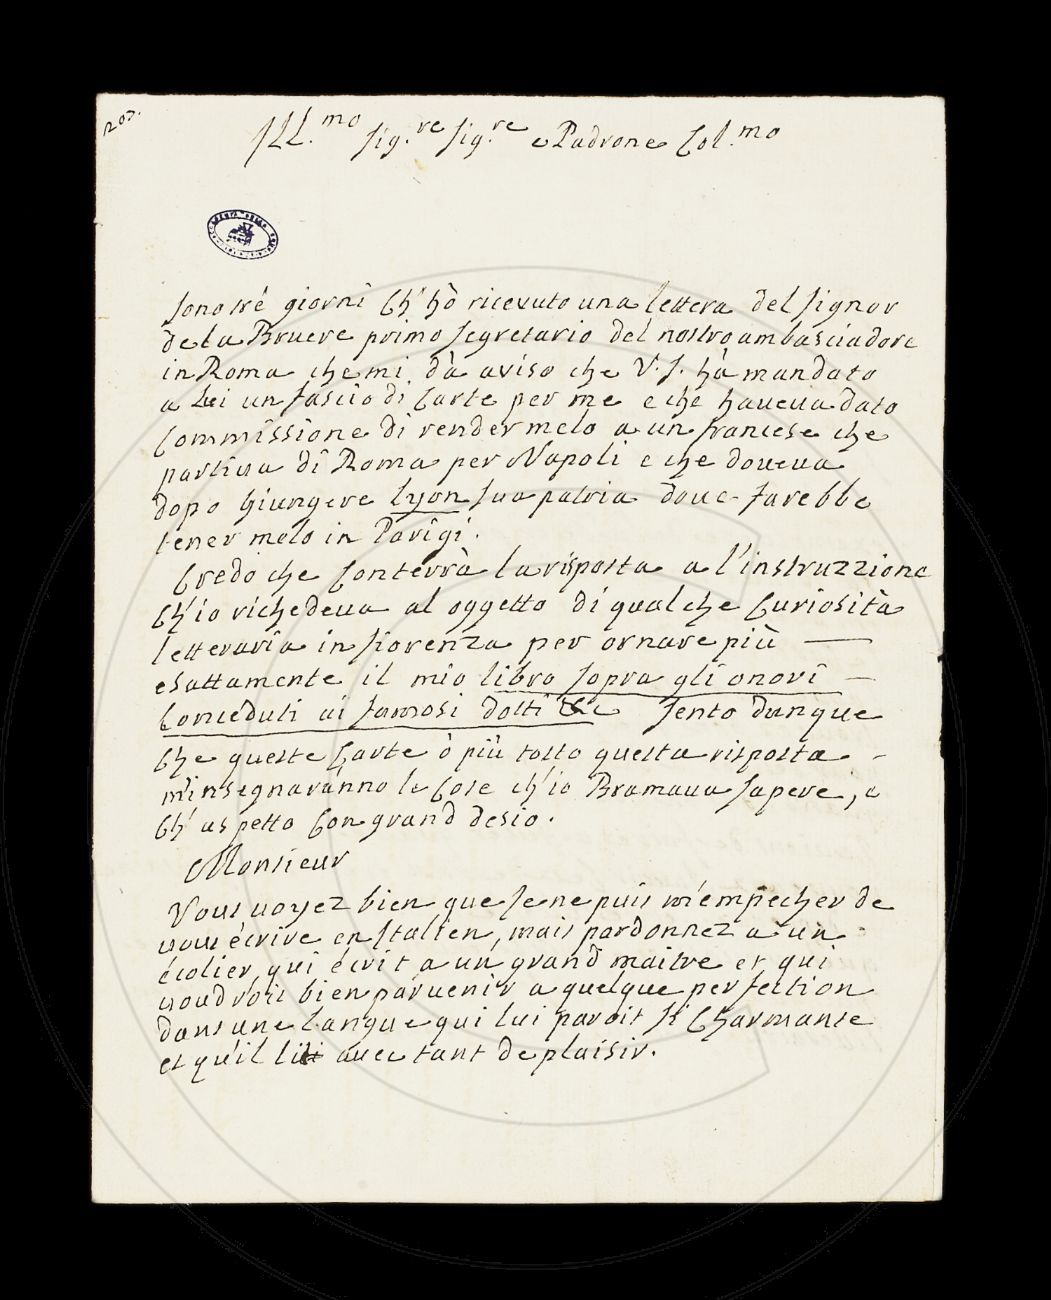 207.
Ill.mo Sig.re Sig.re e Padrone Col.mo
Sono tré giorni Ch'hò ricevuto una lettera del Signor
de la Bruere primo Segretario del nostro ambasciadore
in Roma che mi dà aviso che V.S. hà mandato
a Lei un fascio di Carte per me e che haveva dato
Commissione di rendermelo a un francese che
partiva di Roma per Napoli e che doveva
dopo Giungere Lyon Sua patria dove Sarebbe
tenermelo in Parigi.
Credo che Conterrà la risposta a l'instruzzione
Ch'io richedeva al oggetto di qualche Curiosità
letteraria in fiorenza per ornare più —
esattamente il mio libro Sopra gli onori —
Conceduti ai famosi dotti &c Sento dunque
Che queste Carte ò più tosto questa risposta -
m'insegnaránno le Cose ch'io Bramava Sapere, e
Ch'aspetto Con grand desio.
Monsieur
Vous voyez bien que Je ne puis m'empecher de
vous écrire en Italien, mais pardonnez a un
écolier, qui écrit a un grand maitre et qui
voudroit bien parvenir a quelque perfection
dans une Langue qui lui paroit Si Charmante
et qu'il lit avec tant de plaisir.